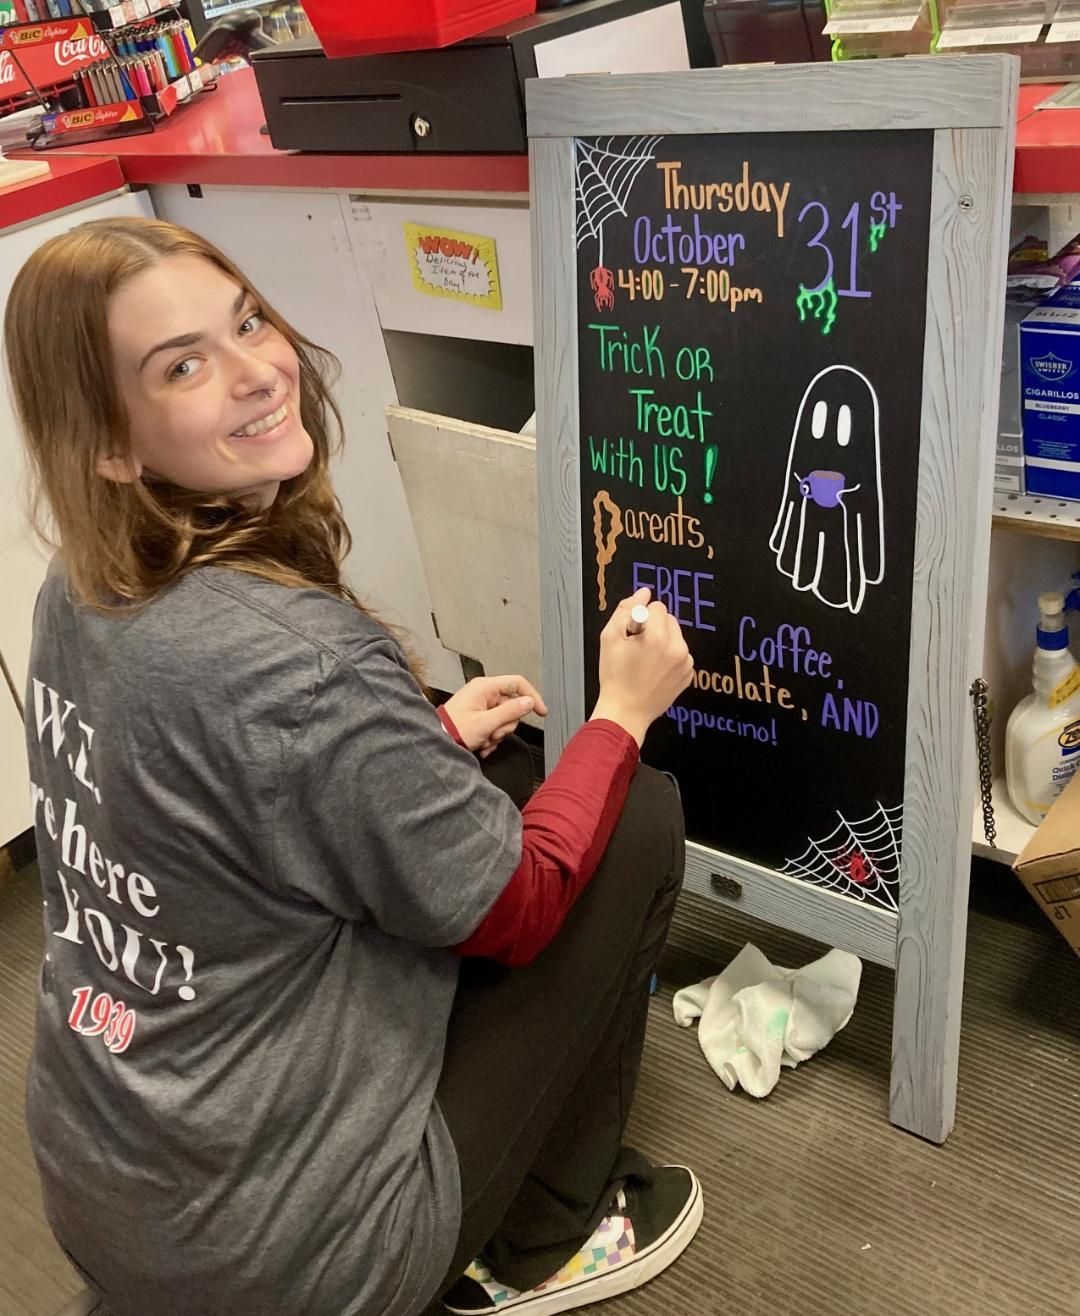 BiC Lighter
Coca-Co
BiC Lighter
WOW!
Delicious
Item of the
Day!
Thursday
October 31st
4:00 - 7:00pm
Trick or
Treat
With US!
Parents,
FREE
Coffee,
hocolate, AND
appuccino!
SWISHER
SWEETS
CIGARILLOS
BLUEBERRY
CLASSIC
W.E.
re here
YOU!
1939
LP